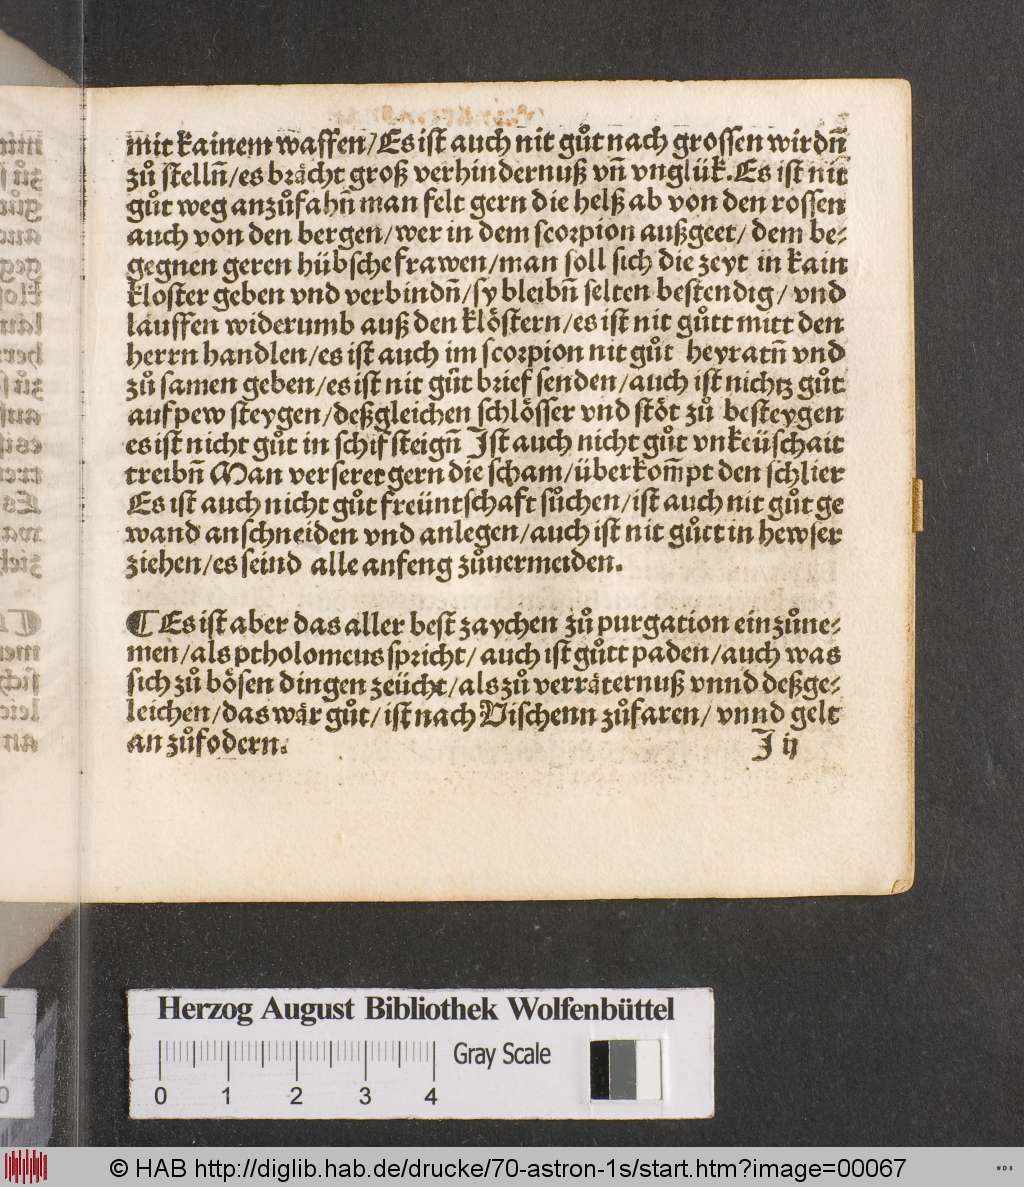 mit kainem waffen/Es ist auch nit gůt nach grossen wirdn̄
zů stelln̄/es brächt groß verhindernuß vn̄ vnglük.Es ist nit
gůt weg anzůfahn̄ man felt gern die helß ab von den rossen
auch von den bergen/wer in dem scorpion außgeet/ dem be⸗
gegnen geren hübsche frawen/man soll sich die zeyt in kain
kloster geben vnd verbindn̄/sy bleibn̄ selten bestendig/ vnd
lauffen widerumb auß den klöstern/es ist nit gůtt mitt den
herrn handlen/es ist auch im scorpion nit gůt heyratn̄ vnd
zů samen geben/es ist nit gůt brief senden/auch ist nichtz gůt
auf pew steygen/deßgleichen schlösser vnd stöt zů besteygen
es ist nicht gůt in schif steign̄ Ist auch nicht gůt vnkeüschait
treibn̄ Man verseret gern die scham/überkom̄pt den schlier
Es ist auch nicht gůt freüntschaft sůchen/ist auch nit gůt ge
wand anschneiden vnd anlegen/auch ist nit gůtt in hewser
ziehen/es seind alle anfeng zůuermeiden.
¶ Es ist aber das aller best zaychen zů purgation einzůne⸗
men/als ptholomeus spricht/ auch ist gůtt paden/auch was
sich zů bösen dingen zeücht/als zů verräternuß vnnd deßge⸗
leichen/das wär gůt/ ist nach Vischenn zůfaren/ vnnd gelt
an zůfodern.
J ij
Herzog August Bibliothek Wolfenbüttel
Gray Scale
0 1 2 3 4
© HAB http://diglib.hab.de/drucke/70-astron-1s/start.htm?image=00067